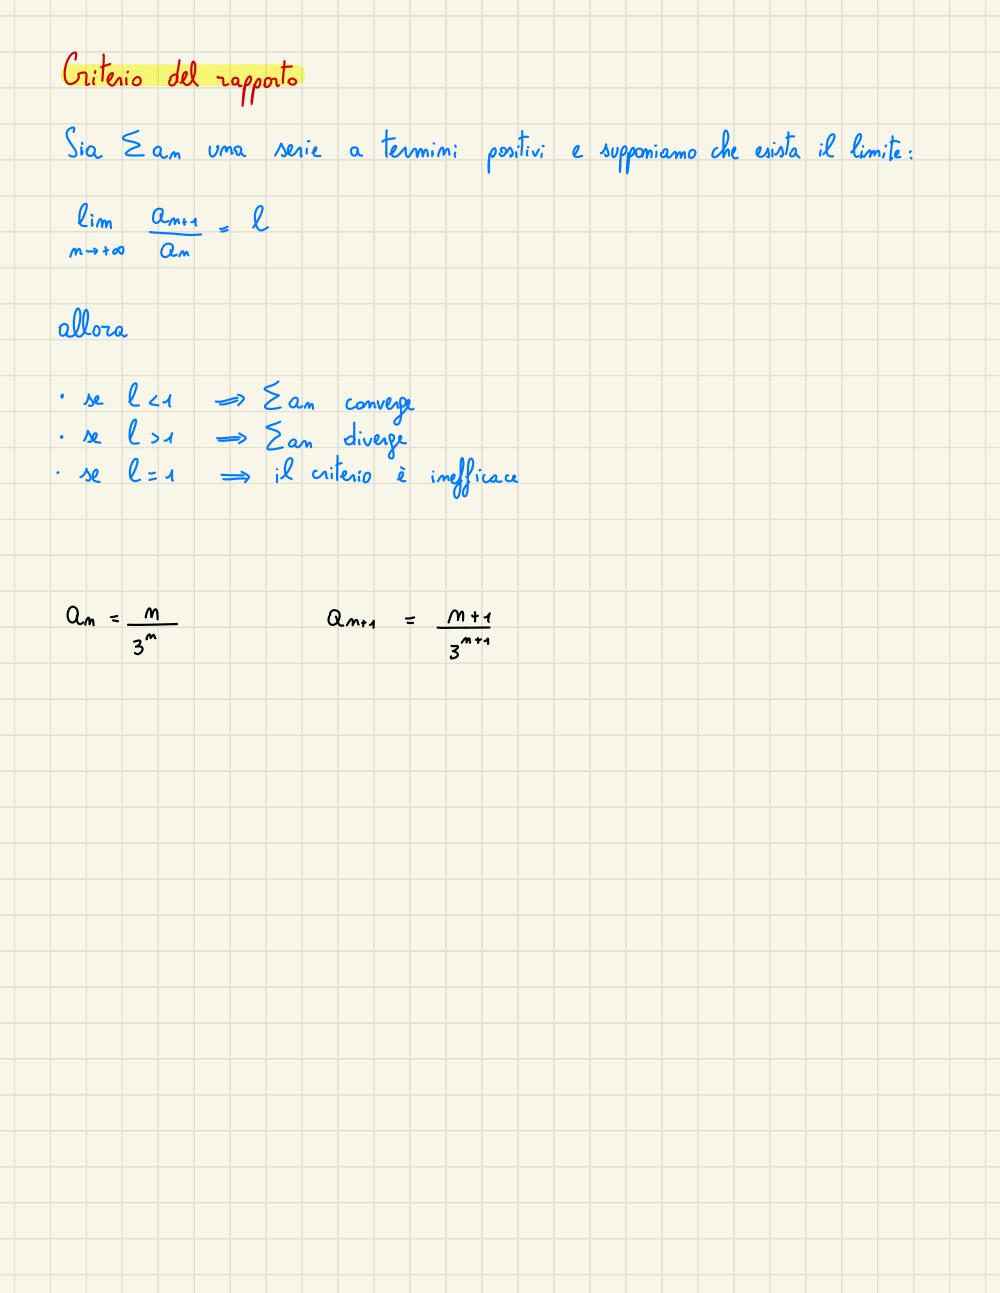 Criterio del rapporto
Sia Σ an una serie a termini positivi e supponiamo che esista il limite:
lim n→+∞ an+1/an = l
allora
· se l < 1 ⟹ Σ an converge
· se l > 1 ⟹ Σ an diverge
· se l = 1 ⟹ il criterio è inefficace
an = n/3^n    an+1 = n+1/3^n+1